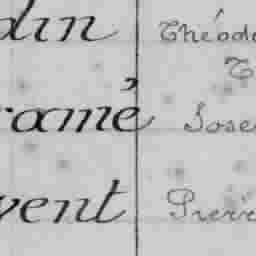 din Théodo
T
ramé Jose
vent Pierre